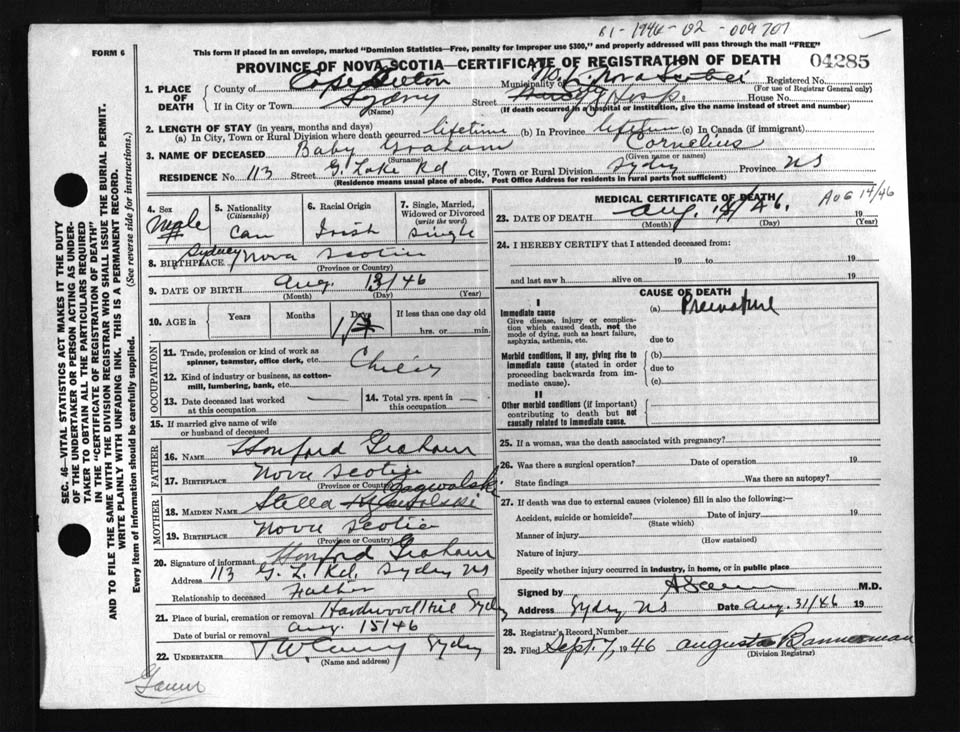 B1-1946-02-009707
FORM 6
This form if placed in an envelope, marked "Dominion Statistics—Free, penalty for improper use $300," and properly addressed will pass through the mail "FREE"
PROVINCE OF NOVA SCOTIA—CERTIFICATE OF REGISTRATION OF DEATH 04285
1. PLACE OF DEATH
County of Cape Breton Municipality of Nova Scotia Registered No.
(For use of Registrar General only)
If in City or Town Sydney Street Hosp. House No.
(Name) (If death occurred in a hospital or institution, give the name instead of street and number)
2. LENGTH OF STAY (in years, months and days)
(a) In City, Town or Rural Division where death occurred lifetime (b) In Province lifetime (c) In Canada (if immigrant)
3. NAME OF DECEASED Baby Graham Cornelius
(Surname) (Given name or names)
RESIDENCE No. 113 Street G. Lake Rd City, Town or Rural Division Sydney Province NS
(Residence means usual place of abode. Post Office Address for residents in rural parts not sufficient)
4. Sex
Male
5. Nationality
(Citizenship)
Can
6. Racial Origin
Irish
7. Single, Married, Widowed or Divorced
(write the word)
Single
8. BIRTHPLACE Sydney Nova Scotia
(Province or Country)
9. DATE OF BIRTH Aug. 13/46
(Month) (Day) (Year)
10. AGE in Years Months Days If less than one day old
hrs. or min.
OCCUPATION
11. Trade, profession or kind of work as
spinner, teamster, office clerk, etc. Child
12. Kind of industry or business, as cotton-
mill, lumbering, bank, etc.
13. Date deceased last worked
at this occupation —
14. Total yrs. spent in
this occupation —
15. If married give name of wife
or husband of deceased
FATHER
16. NAME Graham
17. BIRTHPLACE Nova Scotia
(Province or Country)
MOTHER
18. MAIDEN NAME Stella
19. BIRTHPLACE Nova Scotia
(Province or Country)
20. Signature of informant Graham
Address 113 G. L. Rd. Sydney NS
Relationship to deceased Father
21. Place of burial, cremation or removal Hardwood Hill Sydney
Date of burial or removal Aug. 15/46
22. UNDERTAKER T. W. Curry Sydney
(Name and address)
MEDICAL CERTIFICATE OF DEATH
AUG 14/46
23. DATE OF DEATH Aug. 14/46. 19
(Month) (Day) (Year)
24. I HEREBY CERTIFY that I attended deceased from:
19 to 19
and last saw h alive on 19
CAUSE OF DEATH
I
Immediate cause (a) Premature
Give disease, injury or complica-
tion which caused death, not the
mode of dying, such as heart failure,
asphyxia, asthenia, etc. due to
Morbid conditions, if any, giving rise to (b)
immediate cause (stated in order due to
proceeding backwards from im-
mediate cause). (c)
II
Other morbid conditions (if important)
contributing to death but not
causally related to immediate cause.
25. If a woman, was the death associated with pregnancy?
26. Was there a surgical operation? Date of operation 19
State findings Was there an autopsy?
27. If death was due to external causes (violence) fill in also the following:—
Accident, suicide or homicide? Date of injury 19
(State which)
Manner of injury
(How sustained)
Nature of injury
Specify whether injury occurred in industry, in home, or in public place
Signed by M.D.
Address Sydney NS Date Aug. 31/46 19
28. Registrar's Record Number
29. Filed Sept. 7, 1946 Augusta Bannerman
(Division Registrar)
SEC. 46—VITAL STATISTICS ACT MAKES IT THE DUTY
OF THE UNDERTAKER OR PERSON ACTING AS UNDER-
TAKER TO OBTAIN ALL THE PARTICULARS REQUIRED
IN THE "CERTIFICATE OF REGISTRATION OF DEATH"
AND TO FILE THE SAME WITH THE DIVISION REGISTRAR WHO SHALL ISSUE THE BURIAL PERMIT.
WRITE PLAINLY WITH UNFADING INK. THIS IS A PERMANENT RECORD.
Every item of information should be carefully supplied. (See reverse side for instructions.)